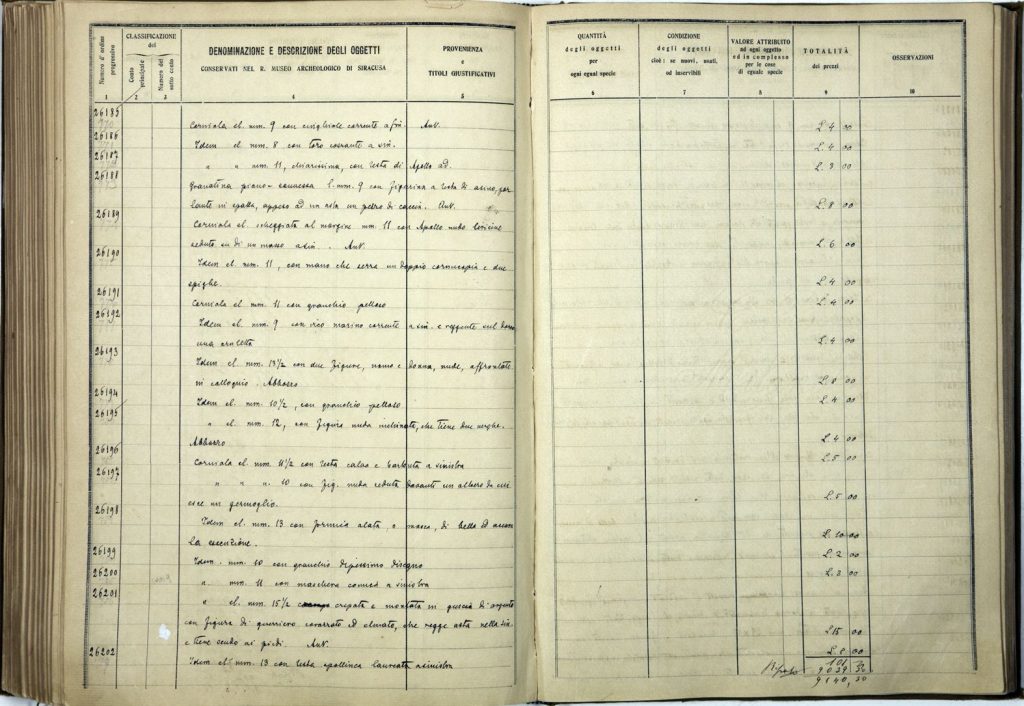 Numero d'ordine progressivo
CLASSIFICAZIONE
del
Conto principale
Numero del sotto conto
DENOMINAZIONE E DESCRIZIONE DEGLI OGGETTI
CONSERVATI NEL R. MUSEO ARCHEOLOGICO DI SIRACUSA
PROVENIENZA
e
TITOLI GIUSTIFICATIVI
1 2 3 4 5
26185
Corniola el. mm. 9 con cinghiale corrente a sin. Aut.
26186
Idem el. mm. 8 con toro cozzante a sin.
26187
" " mm. 11, chiarissima, con testa di Apollo ad.
26188
Granatina piano-convessa l. mm. 9 con figurina a testa di asino, por
tante in spalla, appeso ad un asta un di caccia. Aut.
26189
Corniola el. scheggiata al margine mm. 11 con Apollo nudo
seduto su di un masso a sin. Aut.
26190
Idem el. mm. 11, con mano che serra un doppio cornucopia e due
spighe.
26191
Corniola el. mm. 11 con granchio pelloso
26192
Idem el. mm. 9 con marino corrente a sin. e reggente sul dorso
una
26193
Idem el. mm. 13 1/2 con due figure, uomo e donna, nude, affrontate
in colloquio. Abbozzo
26194
Idem el. mm. 10 1/2, con granchio pelloso
26195
" el. mm. 12, con figura nuda inclinata, che tiene due verghe.
Abbozzo
26196
Corniola el. mm. 11 1/2 con testa calva e barbuta a sinistra
26197
" " " 10 con fig. nuda seduta davanti un albero da cui
esce un germoglio.
26198
Idem el. mm. 13 con formica alata o mosca, di bella ed
la esecuzione.
26199
Idem. mm. 10 con granchio disegno
26200
" mm. 11 con maschera comica a sinistra
26201
" el. mm. 15 1/2 crepata e montata in guscio di argento
con figura di guerriero corazzato ed elmato, che regge asta nella sin.
e tiene scudo ai piedi. Aut.
26202
Idem el. mm. 13 con testa apollinea laureata a sinistra
QUANTITÀ
degli oggetti
per
ogni egual specie
CONDIZIONE
degli oggetti
cioè: se nuovi, usati,
od inservibili
VALORE ATTRIBUITO
ad ogni oggetto
ed in complesso
per le cose
di eguale specie
TOTALITÀ
dei prezzi
OSSERVAZIONI
6 7 8 9 10
L. 4 00
L. 4 00
L. 3 00
L. 8 00
L. 6 00
L. 4 00
L. 4 00
L. 4 00
L. 8 00
L. 4 00
L. 4 00
L. 5 00
L. 5 00
L. 10 00
L. 2 00
L. 3 00
L. 15 00
L. 8 00
101
Riporto 9039 30
9140,30